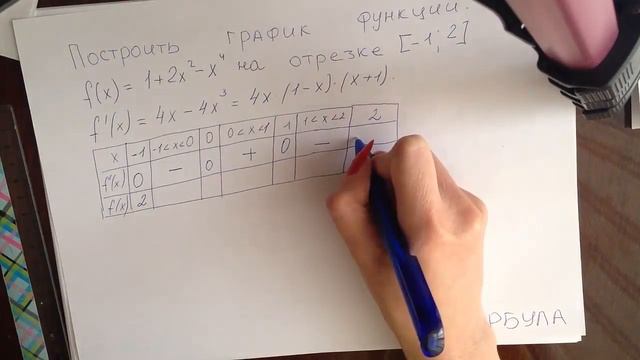 Построить график функции.
f(x) = 1+2x²-x⁴ на отрезке [-1; 2]
f'(x) = 4x-4x³ = 4x·(1-x)·(x+1).
x -1 -1<x<0 0 0<x<1 1 1<x<2 2
f'(x) 0 − 0 + 0 −
f(x) 2
РБУЛА